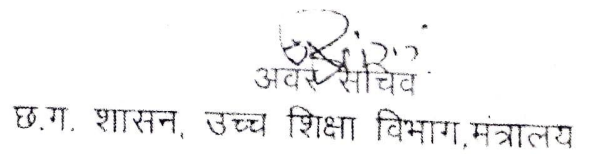 अवर सचिव
छ.ग. शासन, उच्च शिक्षा विभाग,मंत्रालय